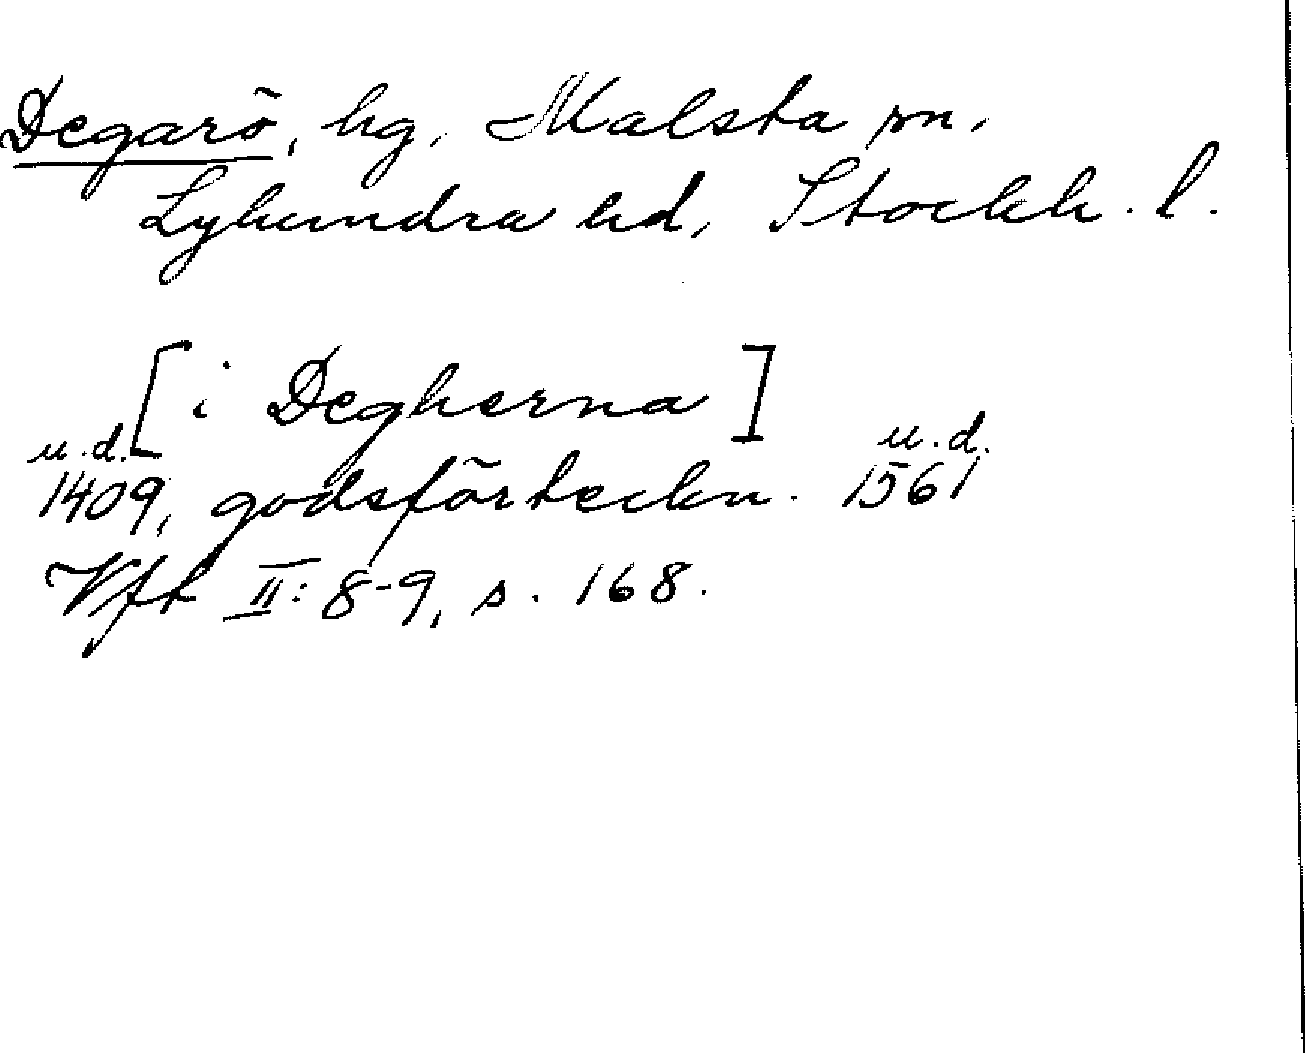 Degarö, hg, Malsta sn,
Lyhundra hd, Stockh. l.
[i Degherna]
u.d. u.d.
1409, godsförteckn. 1561
Vfk II: 8-9, s. 168.